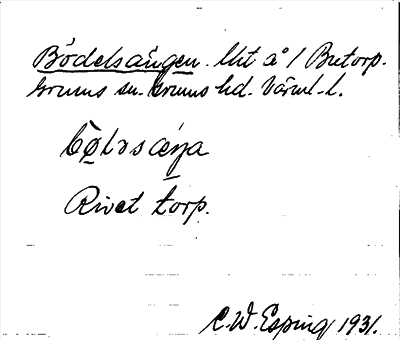 Bödelsängen. Utt å 1 Bretorp.
Grums sn. Grums hd. Värml. l.
Rivet torp.
C.W. Esping 1931.